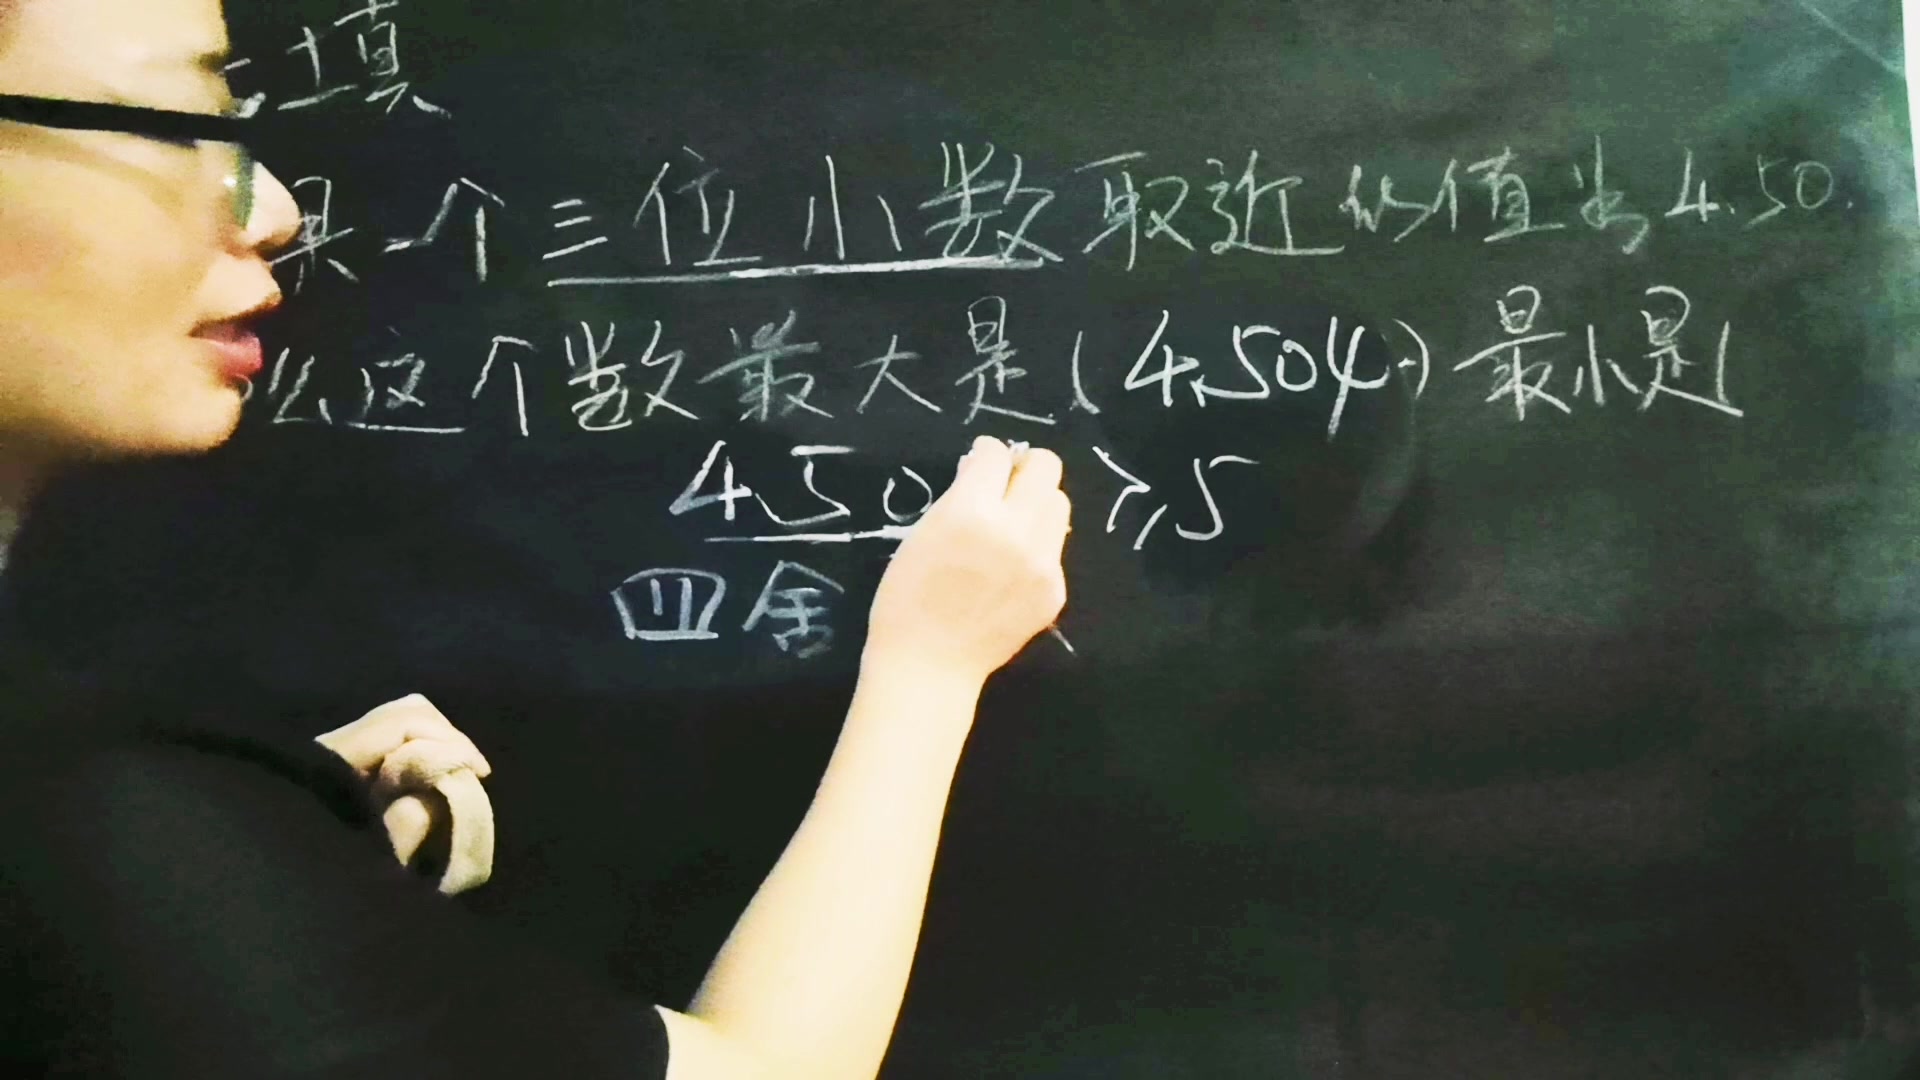 填
果一个三位小数取近似值为4.50.
么这个数最大是(4.504.)最小是(
4.50 ≥5
四舍